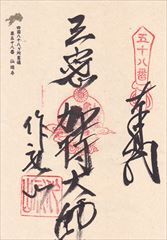 五十八番
奉納
三密加持大師
作礼山
四国八十八ヶ所霊場
第五十八番 仙遊寺